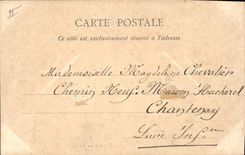 II
CARTE POSTALE
Ce côté est exclusivement réservé à l'adresse
Mademoiselle Magdeleine Chevalier
Chemin Neuf. Maison Hucherel
Chantenay
Loire Infre